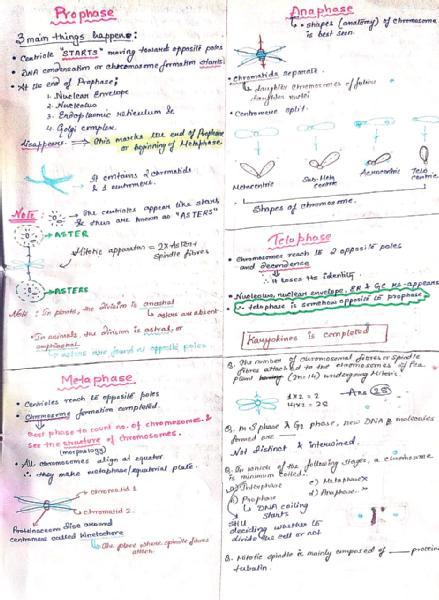 Prophase
3 main things happens:
• Centriole "STARTS" moving towards opposite poles
• DNA condensation or chromosome formation starts
• At the end of Prophase;
1. Nuclear Envelope
2. Nucleolus
3. Endoplasmic reticulum &
4. Golgi complex
disappears. ⟹ this marks the end of Prophase
or beginning of Metaphase.
It contains 2 chromatids
& 1 centromere.
Note: → The centrioles appear like stars
& thus are known as "ASTERS"
→ ASTER
Mitotic apparatus = 2 Asters +
spindle fibres
→ ASTERS
Note: In plants, the division is anastral
↳ asters are absent
• In animals, the division is astral, or
amphiastral
↳ asters are found at opposite poles
Metaphase
• Centrioles reach to opposite poles
• Chromosome formation completed.
Best phase to count no. of chromosomes &
see the structure of chromosomes.
(morphology)
• All chromosomes align at equator
∴ they make metaphase/equatorial plate.
→ Chromatid 1
→ Chromatid 2.
Proteinaceous disc around
centromere called kinetochore
↳ The place where spindle fibres
attach.
Anaphase
• shapes (anatomy) of chromosome
is best seen.
• Chromatids separate.
↳ daughter chromosomes of future
daughter nuclei
• Centromere split.
Metacentric
Sub-Meta
centric
Acrocentric
Telo
centric
Shapes of chromosome.
Telophase
• Chromosomes reach to 2 opposite poles
and decondense
∴ It loses the identity
• Nucleolus, nuclear envelope, ER & GC re-appears
∴ telophase is somehow opposite to prophase
Karyokinesis is completed
Q. The number of chromosomal fibres or spindle
fibres attached to the centromeres of pea
plant (2n=14) undergoing Mitosis.
1x2 = 2
14x2 = 28
Ans (28)
Q. In S phase & G2 phase, new DNA molecules
formed are
Not distinct & Intertwined.
Q. In which of the following stages, a chromosome
is minimum coiled:
a) Interphase
c) Metaphase x
b) Prophase
d) Anaphase. x
↳ DNA coiling
starts
still
deciding whether to
divide the cell or not
Q. Mitotic spindle is mainly composed of ___ protein
tubulin.